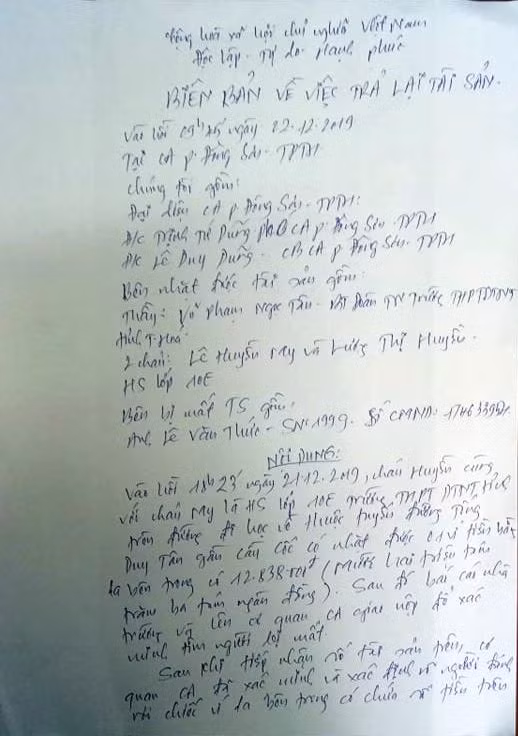 Cộng hoà xã hội chủ nghĩa Việt Nam
Độc lập - Tự do - Hạnh phúc
BIÊN BẢN VỀ VIỆC TRẢ LẠI TÀI SẢN.
Vào hồi 09h45 ngày 22.12.2019
Tại CA p. Đông Sơn - TPTH
Chúng tôi gồm:
Đại diện CA p Đông Sơn - TPTH:
Đ/c Trịnh Tứ Dũng CA p Đông Sơn - TPTH
Đ/c Lê Duy Dũng - CB CA p Đông Sơn - TPTH
Bên nhặt được tài sản gồm:
Thầy: Vũ Phạm Ngọc Tân - Đoàn TN Trường THPT DTNT
tỉnh T. Hoá
2 cháu: Lê Huyền My và Lương Thị Huyền.
HS lớp 10E
Bên bị mất TS gồm:
Anh Lê Văn Thức - SN: 1999. Số CMND:
NỘI DUNG:
Vào hồi 18h23' ngày 21.12.2019, cháu Huyền cùng
với cháu My là HS lớp 10E trường THPT DTNT tỉnh
trên đường đi học về thuộc tuyến đường
Duy Tân gần cầu Cốc có nhặt được 01 ví tiền bằng
da bên trong có 12.838.000đ (mười hai triệu tám
trăm ba tám ngàn đồng). Sau đó báo cái nhà
trường và lên cơ quan CA giao nộp để xác
minh tìm người bị mất.
Sau khi tiếp nhận số tài sản trên, cơ
quan CA đã xác minh và xác định về người đánh
rơi chiếc ví da bên trong có chứa số tiền trên